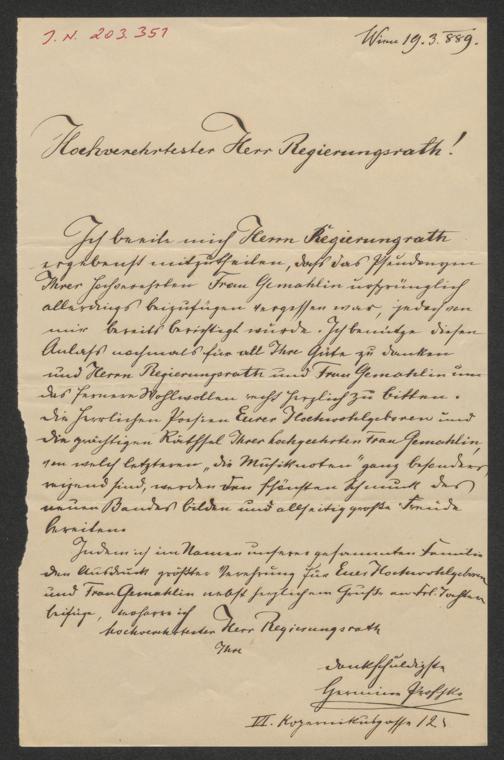 J. N. 203.351
Wien 19. 3. 889.
Hochverehrtester Herr Regierungsrath!
Ich beeile mich Herrn Regierungrath
ergebenst mitzutheilen, daß das Pseudonym
Ihrer hochverehrten Frau Gemahlin ursprünglich
allerdings beizufügen vergessen war, jedoch von
mir bereits berichtigt wurde. Ich benütze diesen
Anlaß nochmals für all Ihre Güte zu danken
und Herrn Regierungsrath und Frau Gemahlin um
das fernere Wohlwollen recht herzlich zu bitten.
Die herrlichen Poesien Euer Hochwohlgeboren und
die prächtigen Räthsel Ihrer hochgeehrten Frau Gemahlin,
von welch letzteren „die Musiknoten" ganz besonders
reizend sind, werden den schönsten Schmuck des
neuen Bandes bilden und allseitig große Freude
bereiten.
Indem ich im Namen unserer gesammten Familie
den Ausdruck größter Verehrung für Euer Hochwohlgeboren
und Frau Gemahlin nebst herzlichem Gruße an Frl. Tochter
beifüge, verharre ich
hochverehrtester Herr Regierungsrath
Ihre
dankschuldigste
Hermine Proschko
VI. Kopernikusgasse 12